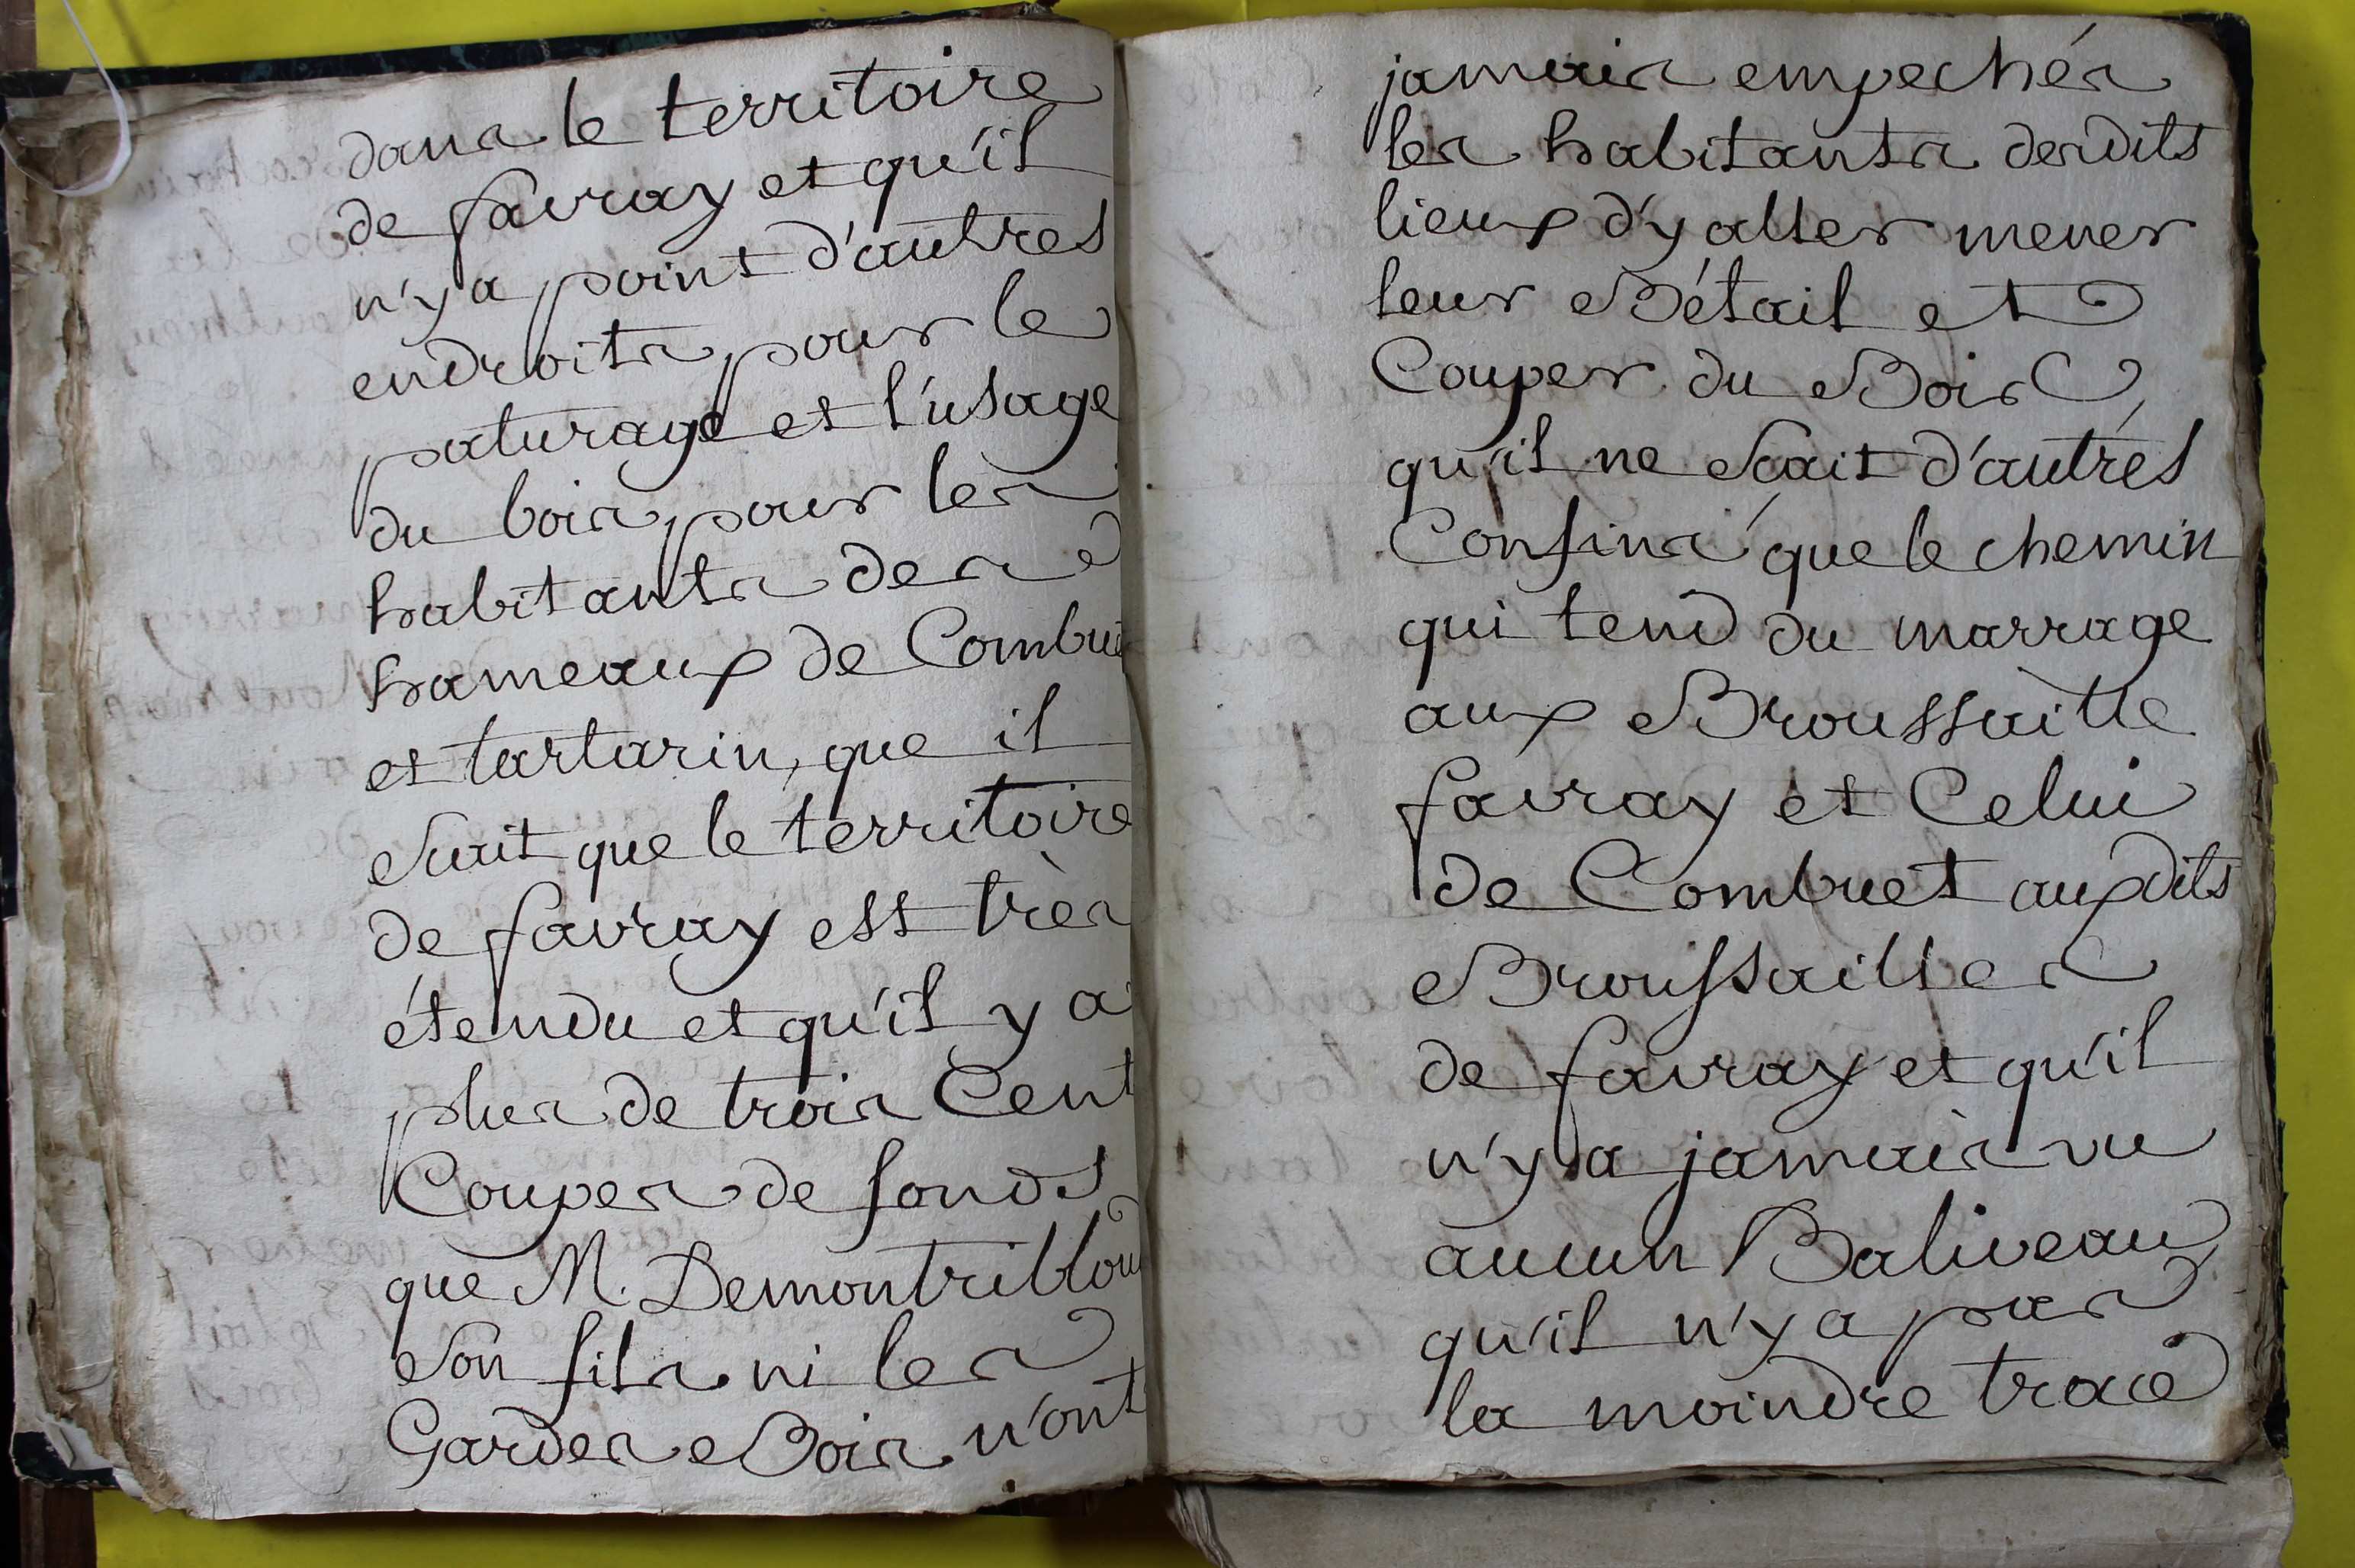 dans le territoire
de favray et qu'il
n'y a point d'autres
endroits pour le
paturage et l'usage
du bois pour les
habitants des
hameaux de Combu
et tartarin, que il
Scait que le territoire
de favray est très
étendu et qu'il y a
plus de trois Cent
Coupes de fonds
que M. Demontrillou
Son fils ni les
Gardes Bois n'ont
jamais empechés
les habitants desdits
lieux d'y aller mener
leur Bétail et
Couper du Bois
qu'il ne Scait d'autres
Confins que le chemin
qui tend du marrage
aux Broussaille
favray et Celui
de Combuet auxdits
Broussailles
de favray et qu'il
n'y a jamais vu
aucun Baliveau
qu'il n'y a pas
la moindre trace